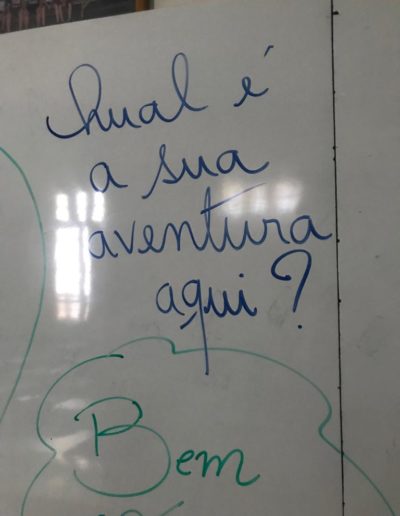 Qual é
a sua
aventura
aqui?
Bem